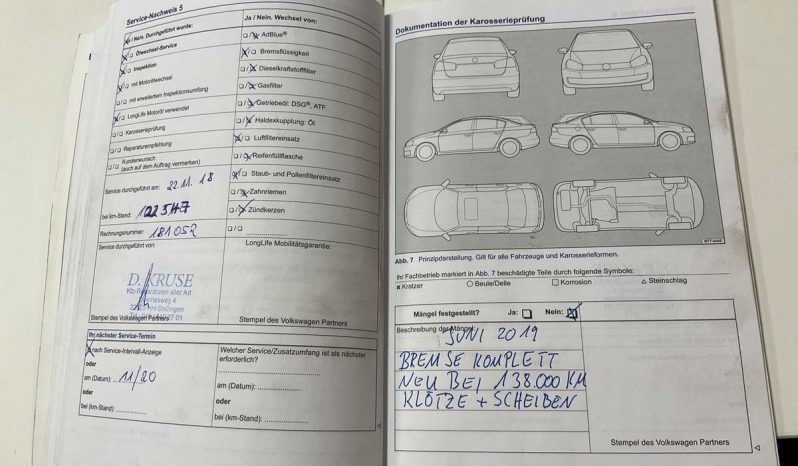 Service-Nachweis 5
Ja / Nein. Durchgeführt wurde:
Ölwechsel-Service
Inspektion
mit Motorölwechsel
mit erweitertem Inspektionsumfang
LongLife Motoröl verwendet
Karosserieprüfung
Reparaturempfehlung
Kundenwunsch
(auch auf dem Auftrag vermerken)
Service durchgeführt am: 22.11.18
bei km-Stand:
Rechnungsnummer: 181052
Service durchgeführt von:
D. KRUSE
Kfz-Reparaturen aller Art
Stempel des Volkswagen Partners
Ja / Nein. Wechsel von:
AdBlue®
Bremsflüssigkeit
Dieselkraftstofffilter
Gasfilter
Getriebeöl: DSG®, ATF
Haldexkupplung: Öl
Luftfiltereinsatz
Reifenfüllflasche
Staub- und Pollenfiltereinsatz
Zahnriemen
Zündkerzen
LongLife Mobilitätsgarantie:
Stempel des Volkswagen Partners
Ihr nächster Service-Termin
nach Service-Intervall-Anzeige
oder
am (Datum): 11/20
oder
bei (km-Stand):
Welcher Service/Zusatzumfang ist als nächster
erforderlich?
am (Datum):
oder
bei (km-Stand):
Dokumentation der Karosserieprüfung
Abb. 7 Prinzipdarstellung. Gilt für alle Fahrzeuge und Karosserieformen.
Ihr Fachbetrieb markiert in Abb. 7 beschädigte Teile durch folgende Symbole:
x Kratzer ○ Beule/Delle □ Korrosion △ Steinschlag
Mängel festgestellt? Ja: Nein:
Beschreibung der Mängel:
JUNI 2019
BREMSE KOMPLETT
NEU BEI 138.000 KM
KLÖTZE + SCHEIBEN
Stempel des Volkswagen Partners